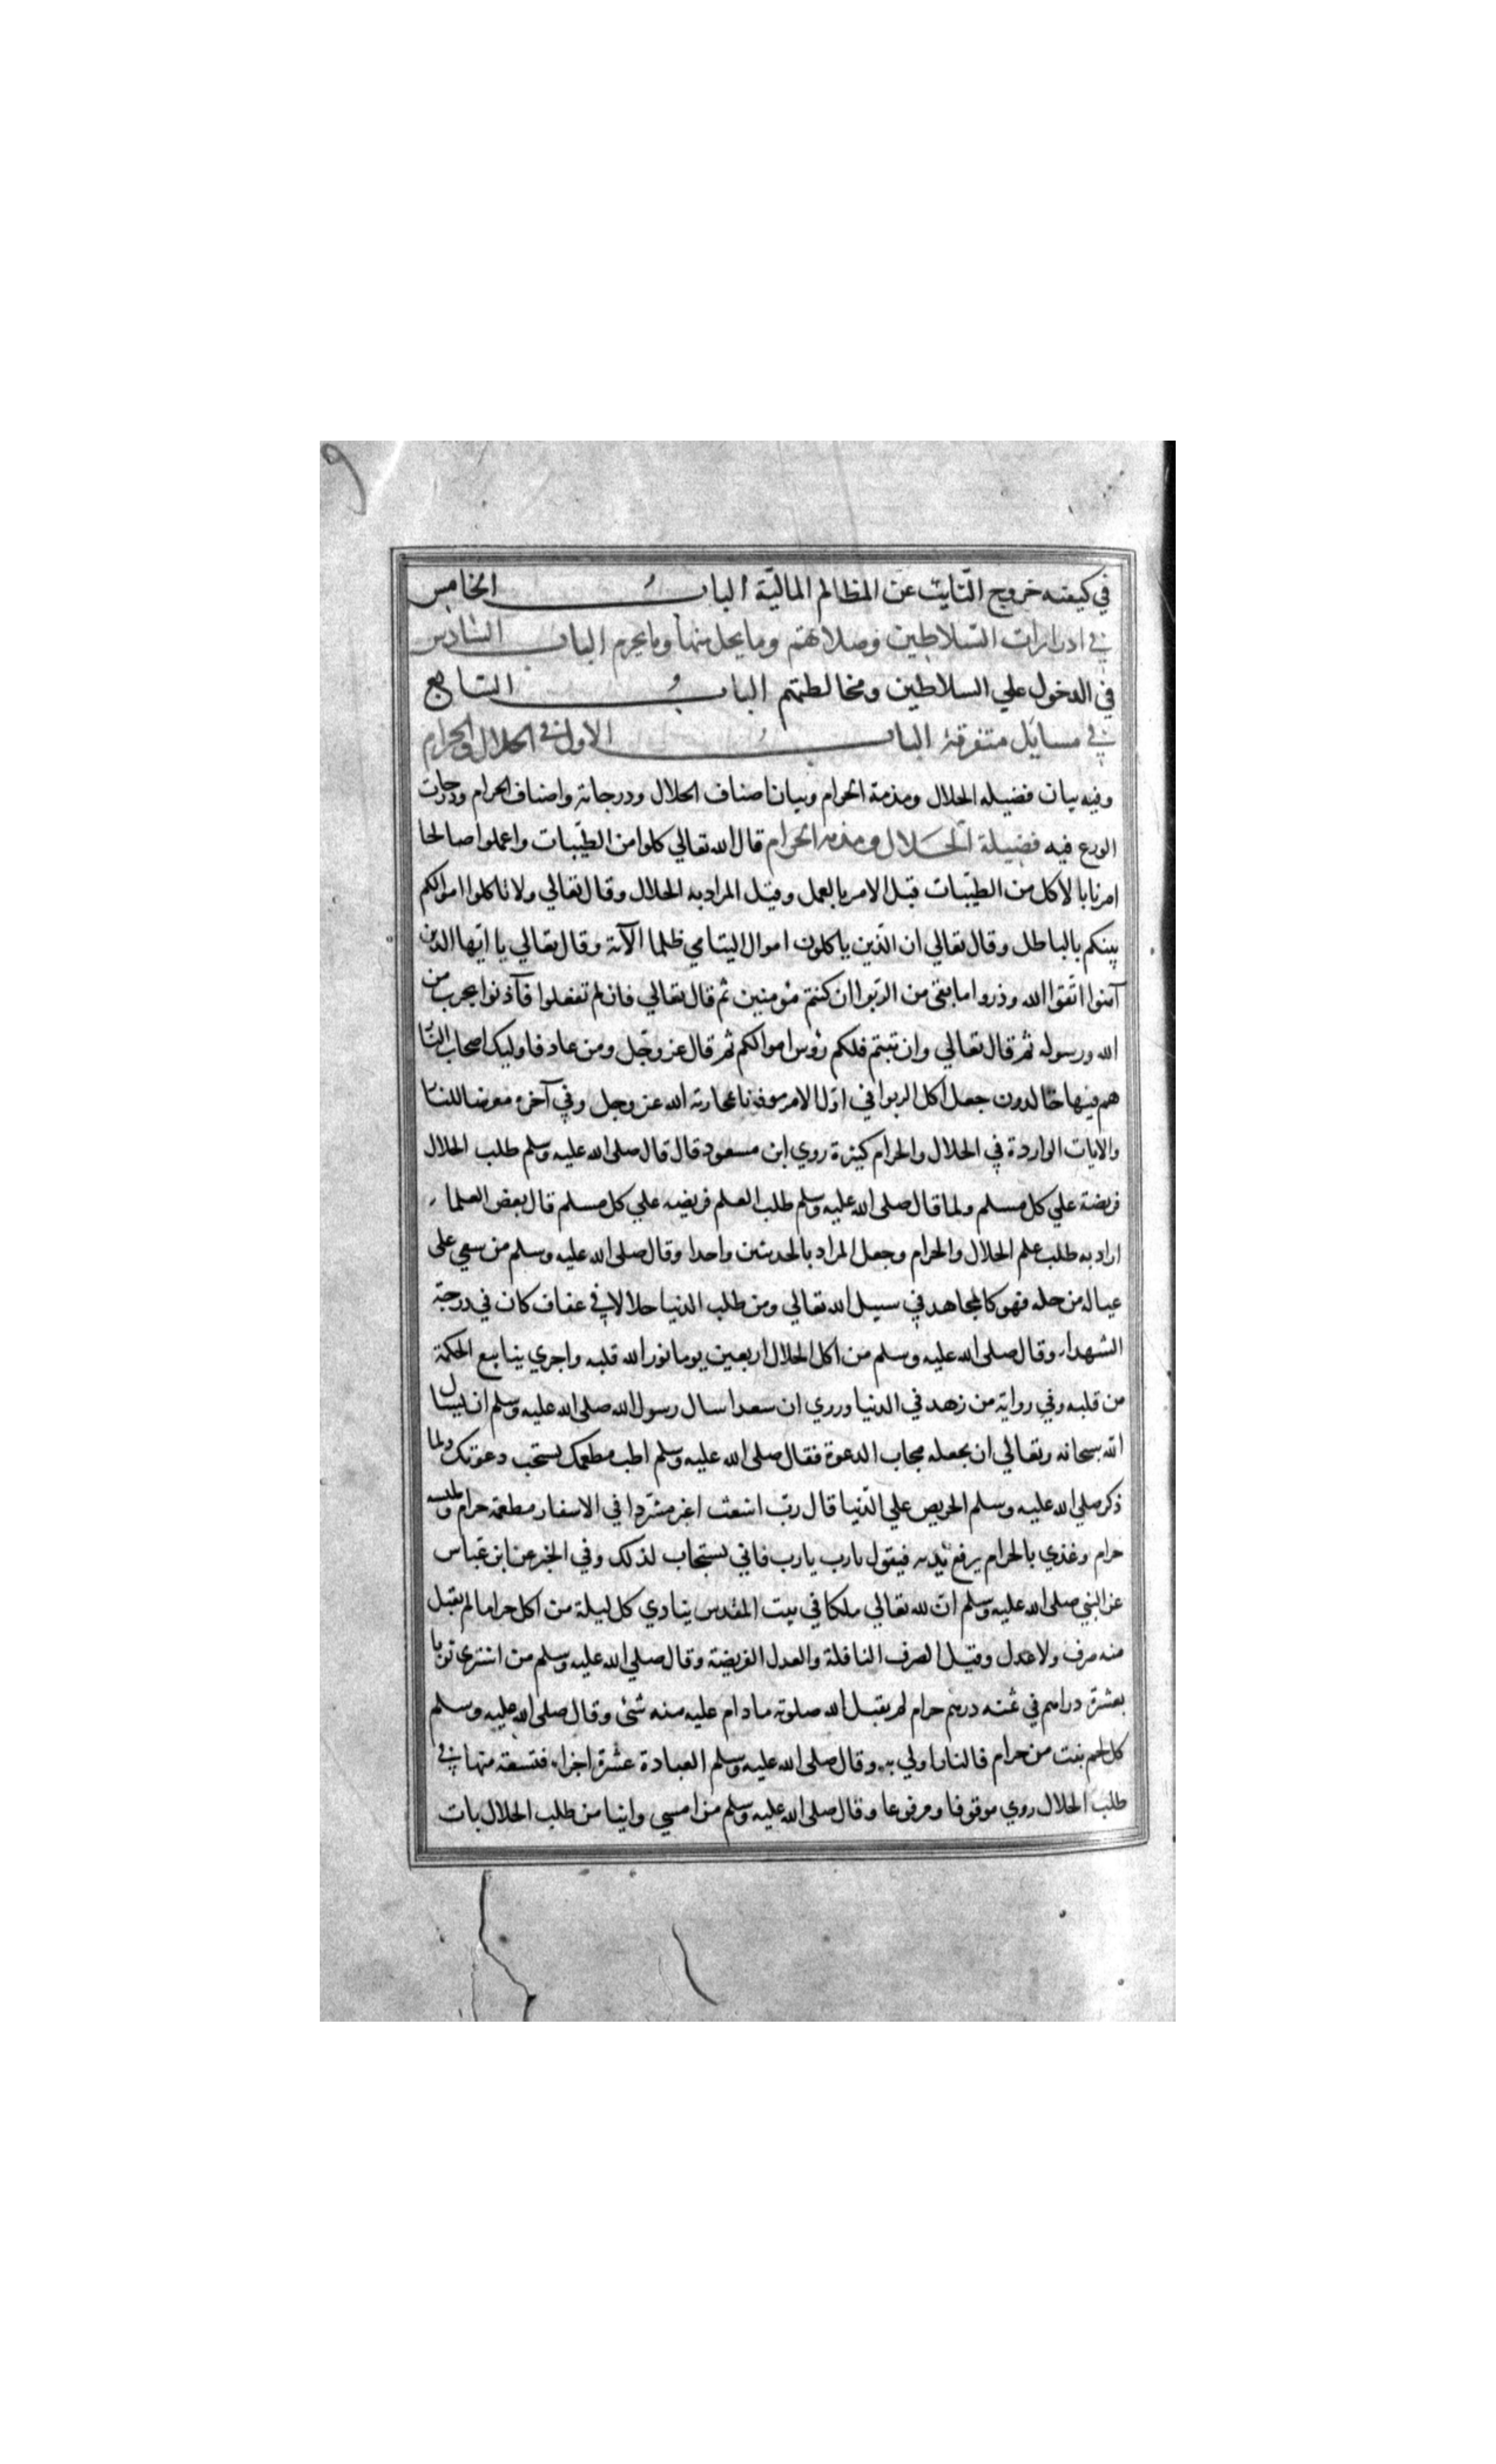 ٩
في كيفية خروج التايب عن المظالم المالية الباب الخامس
في ادرارات السلاطين وصلاتهم وما يحل منها وما يحرم الباب السادس
في الدخول علي السلاطين ومخالطتهم الباب السابع
في مسايل متفرقة الباب الاول في الحلال والحرام
وفيه بيان فضيله الحلال ومذمة الحرام وبيان اصناف الحلال ودرجاته واصناف الحرام ودرجات
الورع فيه فضيلة الحلال ومذمه الحرام قال الله تعالي كلوا من الطيبات واعملوا صالحا
امرنا بالاكل من الطيبات قبل الامر بالعمل وقيل المراد به الحلال وقال تعالي ولا تاكلوا اموالكم
بينكم بالباطل وقال تعالي ان الذين ياكلون اموال اليتامي ظلما الآية وقال تعالي يا ايها الذين
آمنوا اتقوا الله وذروا ما بقي من الربوا ان كنتم مؤمنين ثم قال تعالي فان لم تفعلوا فآذنوا بحرب من
الله ورسوله ثم قال تعالي وان تبتم فلكم رؤس اموالكم ثم قال عز وجل ومن عاد فاوليك اصحاب النار
هم فيها خالدون جعل اكل الربوا في اول الامر موذنا بمحاربة الله عز وجل وفي آخره معرضا للنار
والايات الواردة في الحلال والحرام كثيرة روي ابن مسعود قال قال صلى الله عليه وسلم طلب الحلال
فريضة علي كل مسلم ولما قال صلى الله عليه وسلم طلب العلم فريضه علي كل مسلم قال بعض العلماء
اراد به طلب علم الحلال والحرام وجعل المراد بالحديثين واحدا وقال صلى الله عليه وسلم من سعي على
عياله من حله فهو كالمجاهد في سبيل الله تعالي ومن طلب الدنيا حلالا في عفاف كان في درجة
الشهداء وقال صلى الله عليه وسلم من اكل الحلال اربعين يوما نور الله قلبه واجري ينابيع الحكمة
من قلبه وفي رواية من زهد في الدنيا وروي ان سعدا سال رسول الله صلى الله عليه وسلم ان يسال
الله سبحانه وتعالي ان يجعله مجاب الدعوة فقال صلى الله عليه وسلم اطب مطعمك تستجب دعوتك ولما
ذكر صلي الله عليه وسلم الحريص علي الدنيا قال رب اشعث اغبر مشردا في الاسفار مطعمة حرام وملبسه
حرام وغذي بالحرام يرفع يديه فيقول يارب يارب فاني يستجاب لذلك وفي الخبر عن ابن عباس
عن النبي صلى الله عليه وسلم ان لله تعالي ملكا في بيت المقدس ينادي كل ليلة من اكل حراما لم يقبل
منه صرف ولا عدل وقيل الصرف النافلة والعدل الفريضة وقال صلي الله عليه وسلم من اشتري ثوبا
بعشرة دراهم في ثمنه درهم حرام لم يقبل الله صلوته ما دام عليه منه شئ وقال صلى الله عليه وسلم
كل لحم نبت من حرام فالنار اولي به وقال صلى الله عليه وسلم العبادة عشرة اجزاء فتسعة منها في
طلب الحلال روي موقوفا ومرفوعا وقال صلى الله عليه وسلم من امسي وانيا من طلب الحلال بات